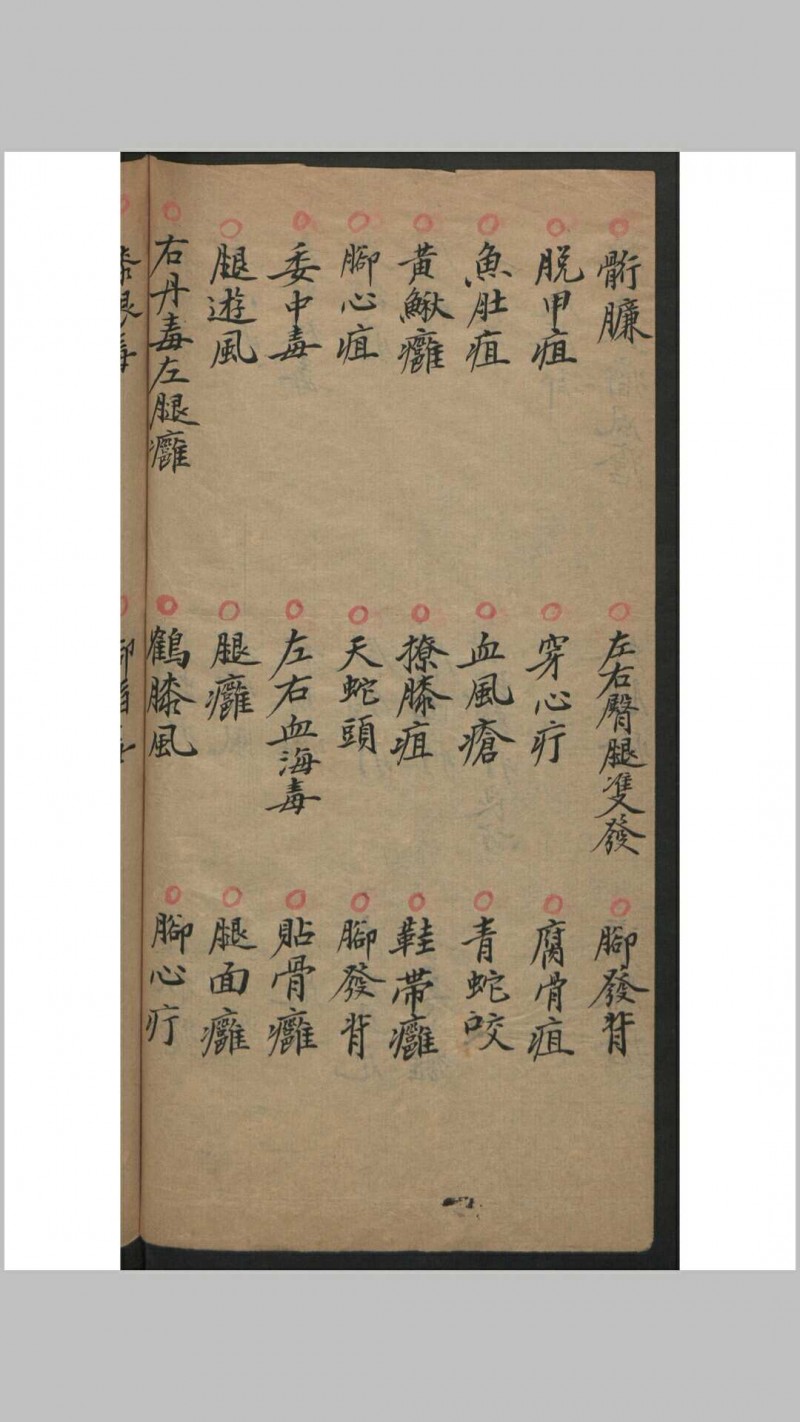 䯒臁
脱甲疽
魚肚疽
黃鰍癰
腳心疽
委中毒
腿遊風
右丹毒左腿癰
左右臀腿雙發
穿心疔
血風瘡
撩膝疽
天蛇頭
左右血海毒
腿癰
鶴膝風
腳發背
腐骨疽
青蛇咬
鞋帶癰
腳發背
貼骨癰
腿面癰
腳心疔